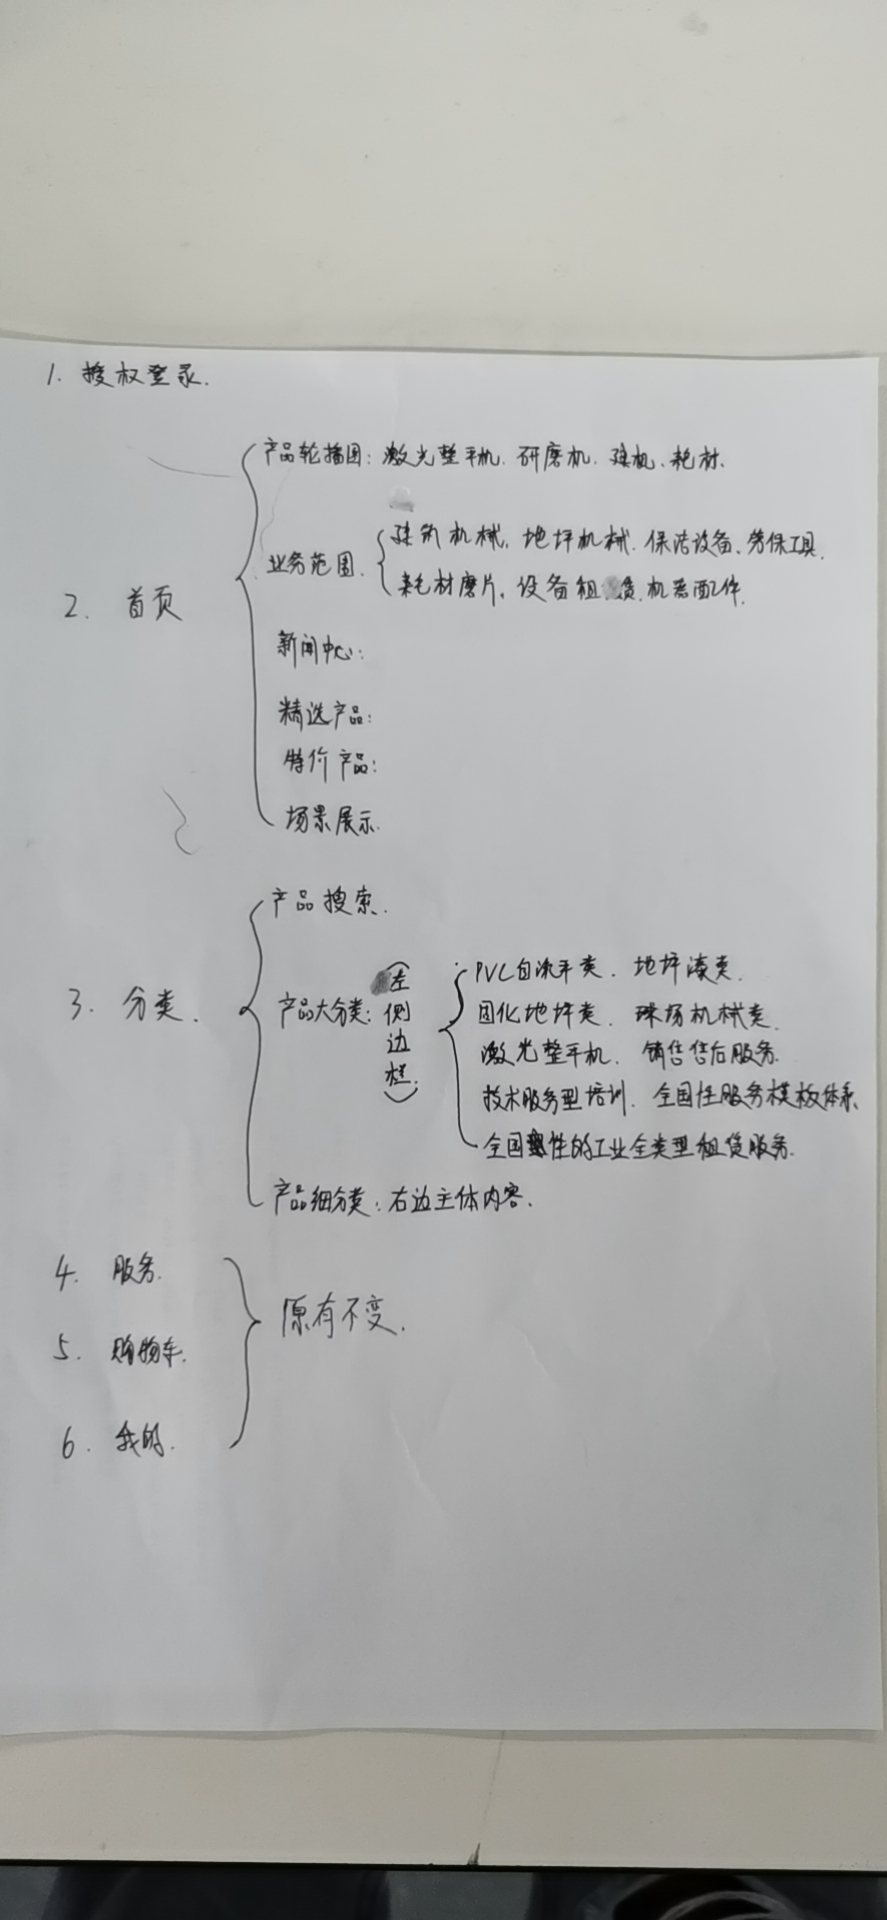 1. 授权登录.
2. 首页
产品轮播图: 激光整平机. 研磨机. 耗材.
业务范围.
建筑机械, 地坪机械. 保洁设备、劳保工具.
耗材磨片, 设备租赁. 机器配件.
新闻中心:
精选产品:
特价产品:
场景展示.
3. 分类.
产品搜索.
产品大分类: (左侧边栏.)
PVC自流平类. 地坪漆类.
固化地坪类. 球场机械类.
激光整平机. 销售售后服务.
技术服务型培训. 全国性服务模板体系.
全国性的工业全类型租赁服务.
产品细分类: 右边主体内容.
4. 服务.
5. 购物车.
6. 我的.
原有不变.